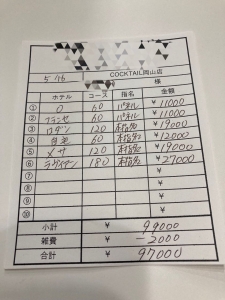 5/16
COCKTAIL岡山店
様
ホテル コース 指名 金額
① 60 パネル ¥11000
② フランセ 60 パネル ¥11000
③ ロダン 120 本指名 ¥19000
④ 60 本指名 ¥12000
⑤ メサ 120 本指名 ¥19000
⑥ 180 本指名 ¥27000
⑦ ¥
⑧ ¥
⑨ ¥
⑩ ¥
小計 ¥ 99000
雑費 ¥ -2000
合計 ¥ 97000